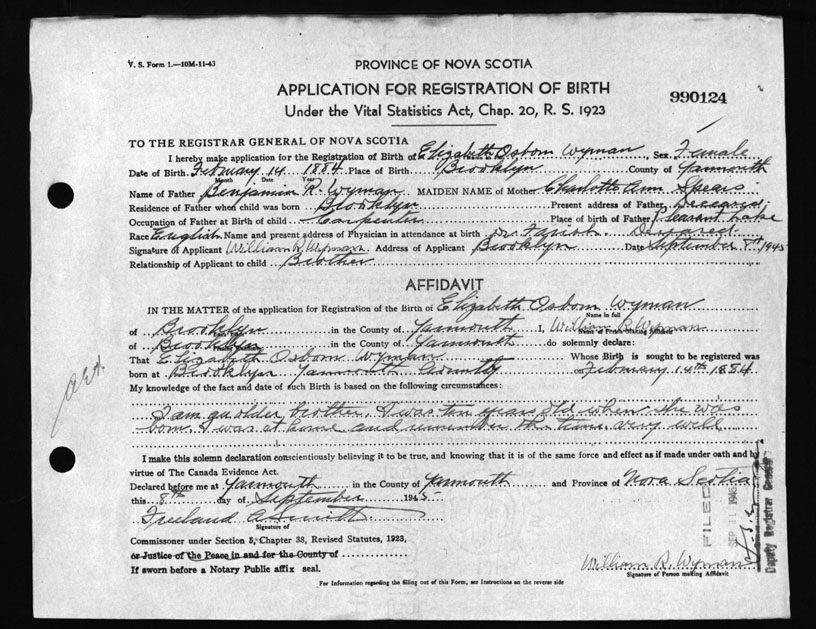 V. S. Form 1.—10M-11-43
PROVINCE OF NOVA SCOTIA
APPLICATION FOR REGISTRATION OF BIRTH
990124
Under the Vital Statistics Act, Chap. 20, R. S. 1923
TO THE REGISTRAR GENERAL OF NOVA SCOTIA
I hereby make application for the Registration of Birth of Elizabeth Osborn Wyman, Sex Female
Date of Birth February 14 1884 Place of Birth Brooklyn County of Yarmouth
Month Date Year
Name of Father Benjamin R. Wyman MAIDEN NAME of Mother Charlotte Ann Spears
Residence of Father when child was born Brooklyn Present address of Father Deceased
Occupation of Father at Birth of child Carpenter Place of birth of Father Pleasant Lake
Race English Name and present address of Physician in attendance at birth Dr. Farish. Deceased
Signature of Applicant William R. Wyman. Address of Applicant Brooklyn Date September 8th 1945
Relationship of Applicant to child Brother
AFFIDAVIT
IN THE MATTER of the application for Registration of the Birth of Elizabeth Osborn Wyman
Name in full
of Brooklyn in the County of Yarmouth I, William R. Wyman
Name of Person Making Affidavit
of Brooklyn in the County of Yarmouth do solemnly declare:
That Elizabeth Osborn Wyman Whose Birth is sought to be registered was
born at Brooklyn Yarmouth County on February 14th 1884
My knowledge of the fact and date of such Birth is based on the following circumstances:
I am an older brother, I was ten years old when she was
born. I was at home and remember the time very well
I make this solemn declaration conscientiously believing it to be true, and knowing that it is of the same force and effect as if made under oath and by
virtue of The Canada Evidence Act.
Declared before me at Yarmouth in the County of Yarmouth and Province of Nova Scotia
this 8th day of September 1945
Freeland A.
Signature of
Commissioner under Section 5, Chapter 38, Revised Statutes, 1923,
or Justice of the Peace in and for the County of
If sworn before a Notary Public affix seal.
William R. Wyman
Signature of Person making Affidavit
For Information regarding the filling out of this Form, see Instructions on the reverse side
FILED
SEP 11 1945
Deputy Registrar General